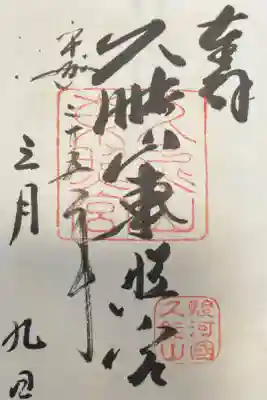 奉拝
久能山東照宮
平成二十五年
三月九日
駿河國
久能山